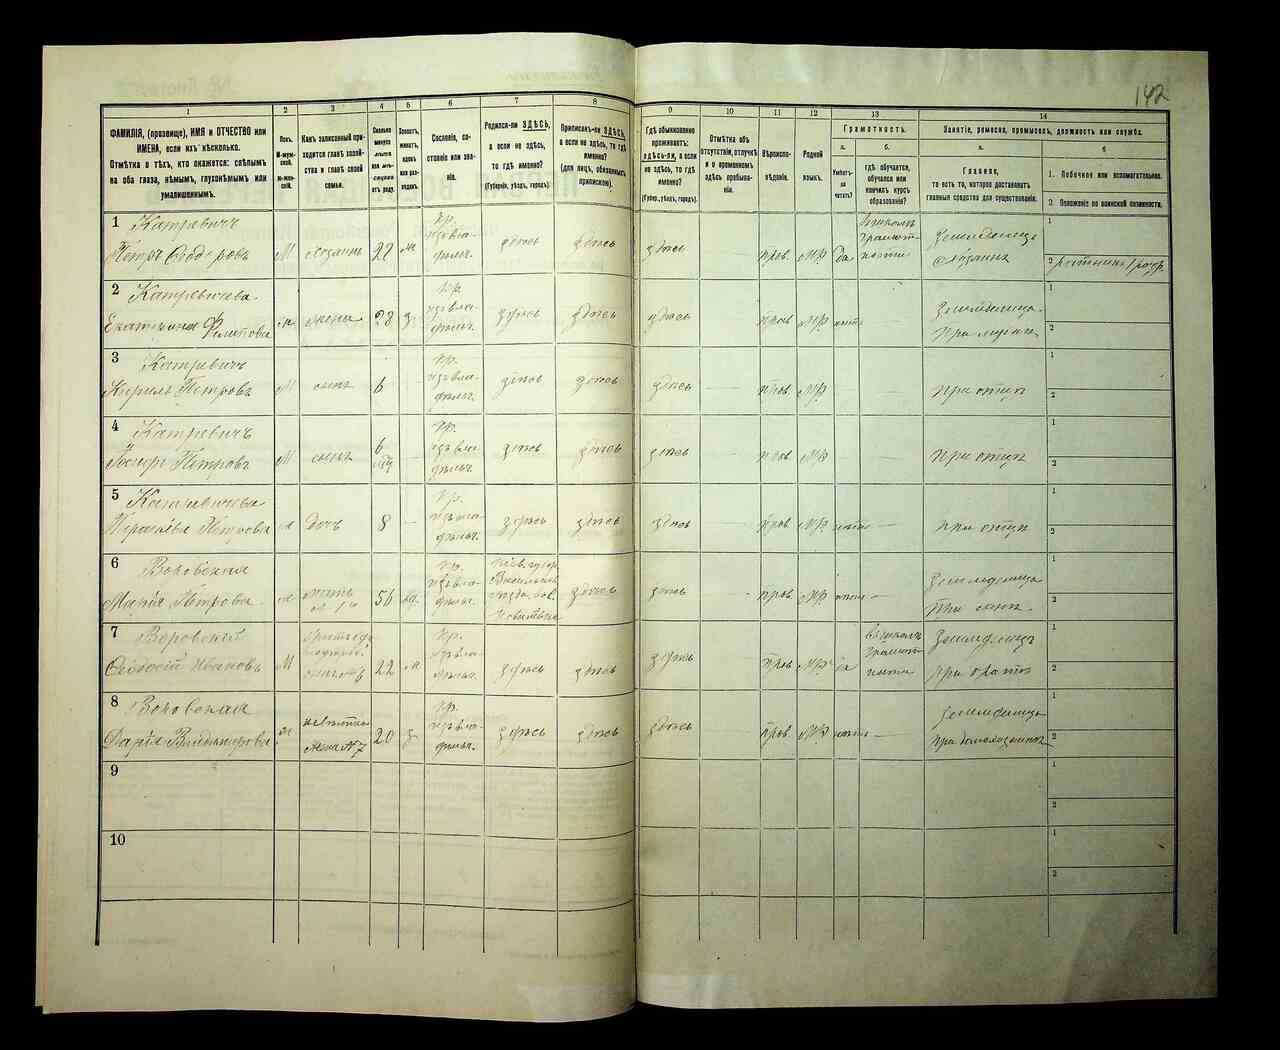 142
1
2
3
4
5
6
7
8
9
10
11
12
13
14
ФАМИЛІЯ, (прозвище), ИМЯ и ОТЧЕСТВО или
ИМЕНА, если ихъ нѣсколько.
Отмѣтка о тѣхъ, кто окажется: слѣпымъ
на оба глаза, нѣмымъ, глухонѣмымъ или
умалишеннымъ.
Полъ.
М-муж-
ской.
Ж-жен-
скій.
Какъ записанный при-
ходится главѣ хозяй-
ства и главѣ своей
семьи.
Сословіе, со-
стояніе или зва-
ніе.
Родился-ли ЗДѢСЬ,
а если не здѣсь,
то гдѣ именно?
(Губернія, уѣздъ, городъ).
Приписанъ-ли ЗДѢСЬ,
а если не здѣсь, то гдѣ
именно?
(для лицъ, обязанныхъ
припискою).
Гдѣ обыкновенно
проживаетъ:
здѣсь-ли, а если
не здѣсь, то гдѣ
именно?
(Губер., уѣздъ, городъ).
Отмѣтка объ
отсутствіи, отлучкѣ
и о временномъ
здѣсь пребыва-
ніи.
Вѣроиспо-
вѣданіе.
Родной
языкъ.
Грамотность.
а.
б.
Умѣетъ-
ли
читать?
гдѣ обучается,
обучался или
кончилъ курсъ
образованія?
Занятіе, ремесло, промыселъ, должность или служба.
а.
б
Главное,
то есть то, которое доставляетъ
главныя средства для существованія.
1. Побочное или вспомогательное.
2. Положеніе по воинской повинности.
1 Катревичъ
Петръ Ѳедоровъ М хозяинъ 22 ж
кр.
изъ вла-
дѣльч.
здѣсь здѣсь здѣсь прав. МР да
въ школѣ
грамот-
ности
Земледелецъ
хозяинъ
1
2
2 Катревичева
Екатерина Филипова ж жена 28 з.
кр
изъ вла-
дѣльч.
здѣсь здѣсь здѣсь прав МР нѣтъ
Земледелица
При мужѣ
1
2
3 Катревичъ
Кирилъ Петровъ М сынъ 6
кр.
изъ вла-
дѣльч.
здѣсь здѣсь здѣсь прав. МР при отцѣ
1
2
4 Катревичъ
Петровъ М сынъ 6
кр.
изъ вла-
дѣльч.
здѣсь здѣсь здѣсь прав МР при отцѣ
1
2
5 Катревичева
Параскева Петрова ж дочь 8
кр.
изъ вла-
дѣльч.
здѣсь здѣсь здѣсь прав МР нѣтъ при отцѣ
1
2
6 Воровская
Марія Петрова ж мать 56 вд.
кр.
изъ вла-
дѣльч.
Кіев. губер.
здѣсь здѣсь прав. МР нѣтъ
Земледелица
При сынѣ
1
2
7 Воровскій
Ѳеодосій Ивановъ М 22 ж
кр.
изъ вла-
дѣльч.
здѣсь здѣсь здѣсь прав МР да
въ школѣ
грамот-
ности
Земледелецъ
При братѣ
1
2
8 Воровская
Дарія Владимірова ж
невѣстка
жена №7
20 з.
кр.
изъ вла-
дѣльч.
здѣсь здѣсь здѣсь прав МР нѣтъ
Земледелица
при домохозяинѣ
1
2
9
1
2
10
1
2